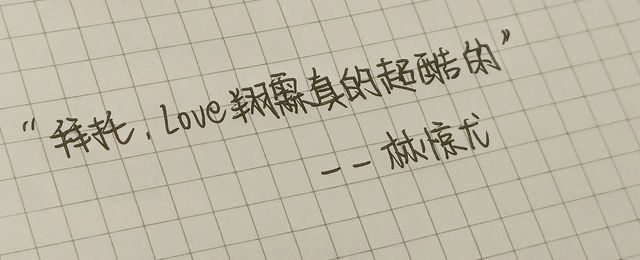 “拜托,Love翔霖真的超酷的”
——林惊尤